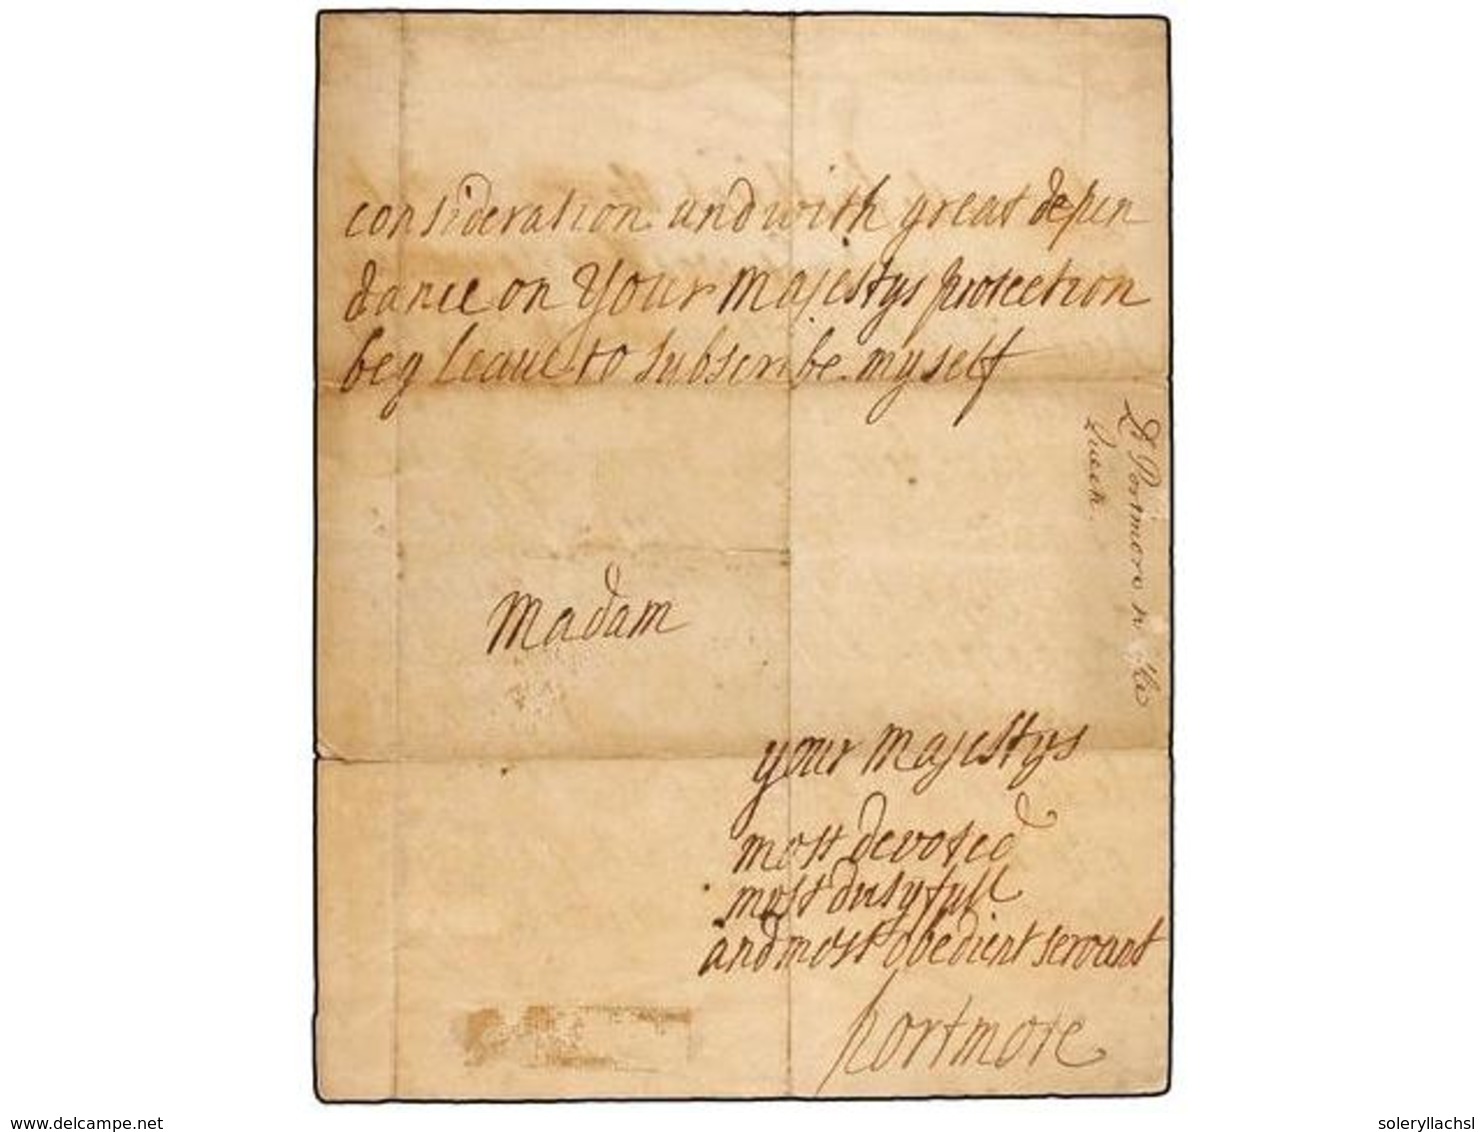 consideration and with great depen
dance on Your Majestys protection
beg leave to subscribe myself
Madam
your Majestys
most devoted
most dutyfull
and most obedient servant
Portmore
Ld Portmore to the
Queen.
www.delcampe.net
soleryllachsl